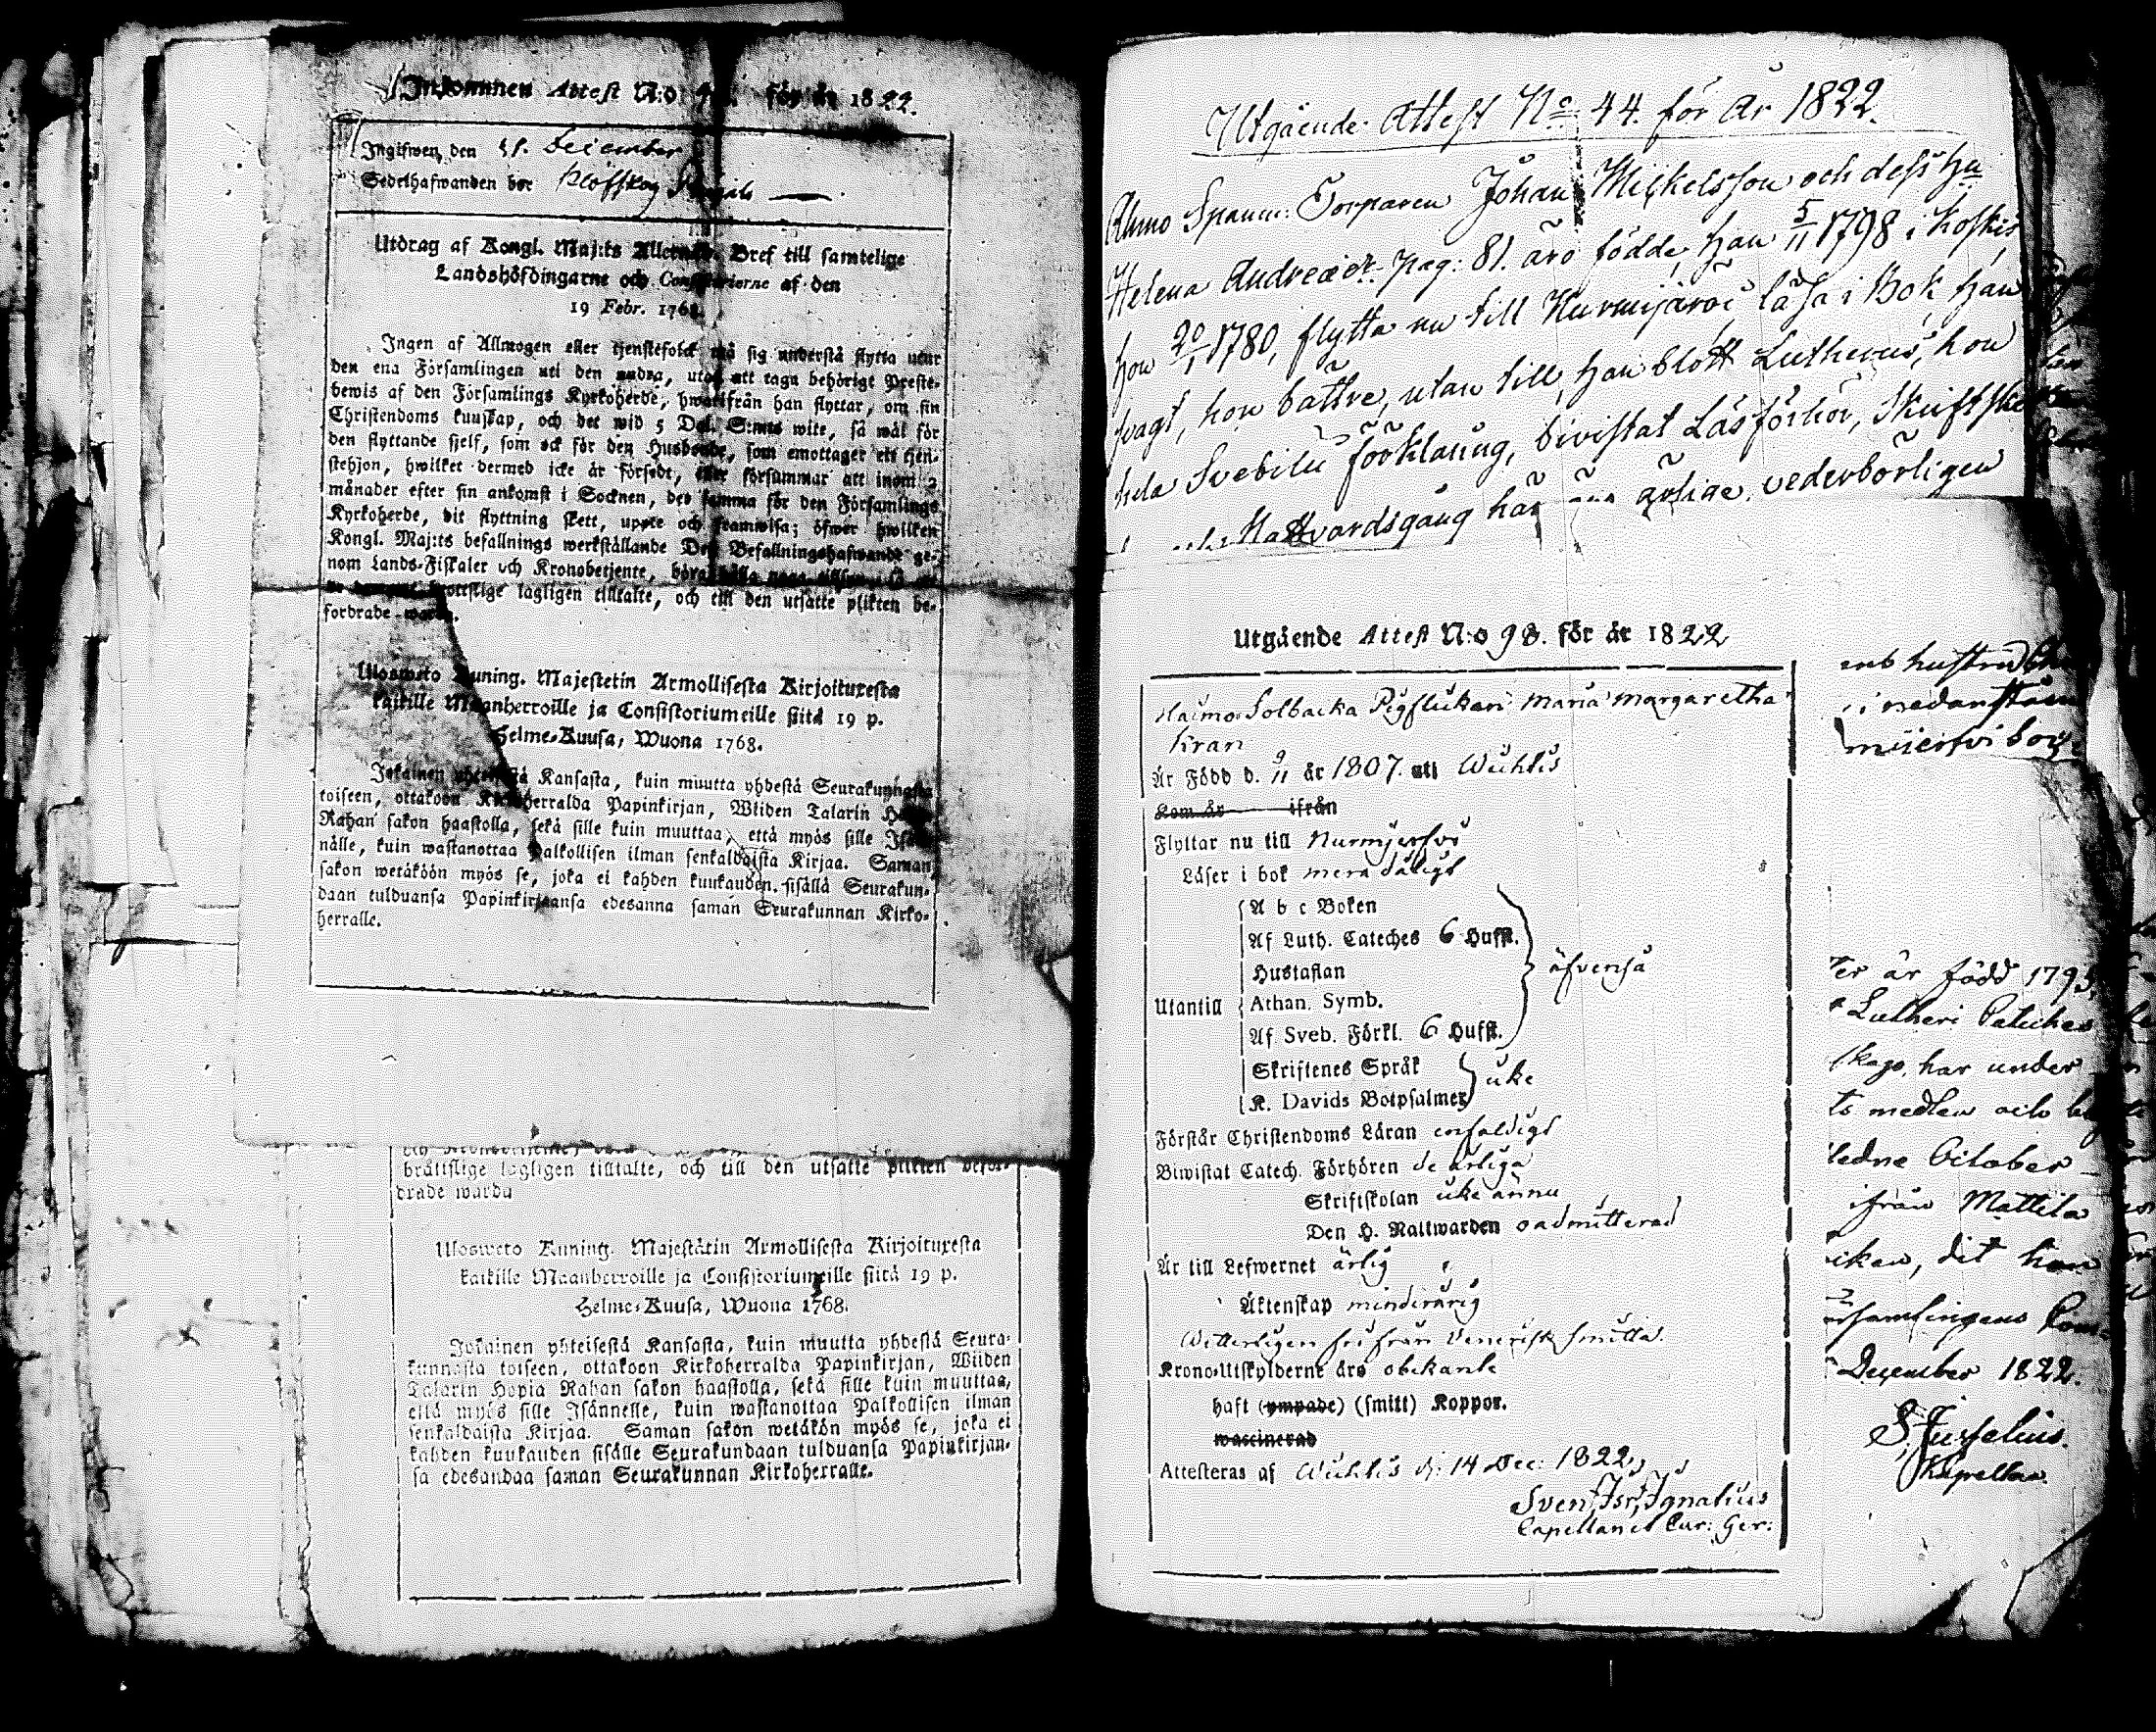 Inkommen Attest N:o för år 1822.
Ingifwen den 31. December
Sedelhafwanden bor Klöfskog
Utdrag af Kongl. Maj:ts Allernåd. Bref till samtelige
Landshöfdingarne och Consistorierne af den
19 Febr. 1768.
Ingen af Allmogen eller tjenstefolck må sig understå flytta utur
den ena Församlingen uti den andra, utan att taga behörigt Preste-
bewis af den Församlings Kyrkoherde, hwarifrån han flyttar, om sin
Christendoms kunskap, och det wid 5 Dal. S:mts wite, så wäl för
den flyttande sjelf, som ock för den Husbonde, som emottager ett tjen-
stehjon, hwilket dermed icke är försedt, eller försummar att inom 2
månader efter sin ankomst i Socknen, det samma för den Församlings
Kyrkoherde, dit flyttning skett, uppte och framwisa; öfwer hwilken
Kongl. Maj:ts befallnings werkställande Dess Befallningshafwande ge-
nom Lands-Fiskaler och Kronobetjente, böra hålla noga
brottslige lagligen tilltalte, och till den utsatte plikten be-
fordrade warda.
Ulosweto Kuning. Majestetin Armollisesta Kirjoituxesta
kaikille Maanherroille ja Consistoriumeille siitä 19 p.
Helme-Kuusa, Wuona 1768.
Jokainen yhteisestä Kansasta, kuin muutta yhdestä Seurakunnasta
toiseen, ottakoon Kirkoherralda Papinkirjan, Wiiden Talarin
Rahan sakon haastolla, sekä sille kuin muuttaa, että myös sille Isän-
nälle, kuin wastanottaa Palkollisen ilman senkaldaista Kirjaa. Saman
sakon wetäköön myös se, joka ei kahden kuukauden sisällä Seurakun-
daan tulduansa Papinkirjaansa edesanna saman Seurakunnan Kirko-
herralle.
brättslige lagligen tilltalte, och till den utsatte plikten befor-
drade warda
Ulosweto Kuning. Majestätin Armollisesta Kirjoituxesta
kaikille Maanherroille ja Consistoriumeille siitä 19 p.
Helme-Kuusa, Wuona 1768.
Jokainen yhteisestä Kansasta, kuin muutta yhdestä Seura-
kunnasta toiseen, ottakoon Kirkoherralda Papinkirjan, Wiiden
Talarin Hopia Rahan sakon haastolla, sekä sille kuin muuttaa,
että myös sille Isännelle, kuin wastanottaa Palkollisen ilman
senkaldaista Kirjaa. Saman sakon wetäkön myös se, joka ei
kahden kuukauden sisälle Seurakundaan tulduansa Papinkirjan-
sa edesandaa saman Seurakunnan Kirkoherralle.
Utgående Attest No 44. för år 1822.
Ahmo Spanm: Torparen Johan Mickelsson och dess hu
Helena Andreædr. pag: 81. äro födde, han 5/11 1798 i Koskis,
hon 20/1 1780, flytta nu till Nurmijärvi läsa i Bok han
svagt, hon bättre, utan till, han blott Lutherus, hon
hela Svebilii förklaring, bivistat Läsförhör, Skriftsko
Nattvardsgång har ärlige, vederbörligen
Utgående Attest N:o 98. för år 1822
Solbacka Pigflickan Maria Margaretha
Kran
Är Född d. 9/11 år 1807. uti Wichtis
Kom år ifrån
Flyttar nu till Nurmijerfvi
Läser i bok mera dåligt
A b c Boken
Af Luth. Cateches 6 Hufst.
Hustaflan
Utantill
Athan. Symb.
Af Sveb. Förkl. 6 Hufst.
äfvenså
Skriftenes Språk
K. Davids Botpsalmer
icke
Förstår Christendoms Läran enfaldigt
Biwistat Catech. Förhören de årliga
Skriftskolan icke ännu
Den H. Nattwarden oadmitterad
Är till Lefwernet ärlig
Äktenskap minderårig
Witterligen fri från Venerisk smitta.
Krono-Utskylderne äro obekante
haft (ympade) (smitt) Koppor.
waccinerad
Attesteras af Wichtis d: 14 Dec: 1822,
Sven Isr. Ignatius
Capellan et Cur: Ger:
hustru
i nedanstå
är född 1795
Lutheri Cateches
har under
medlen och
October
ifrån Mattila
dit hon
församlingens
December 1822.
S. Juselius.
Kapellan.